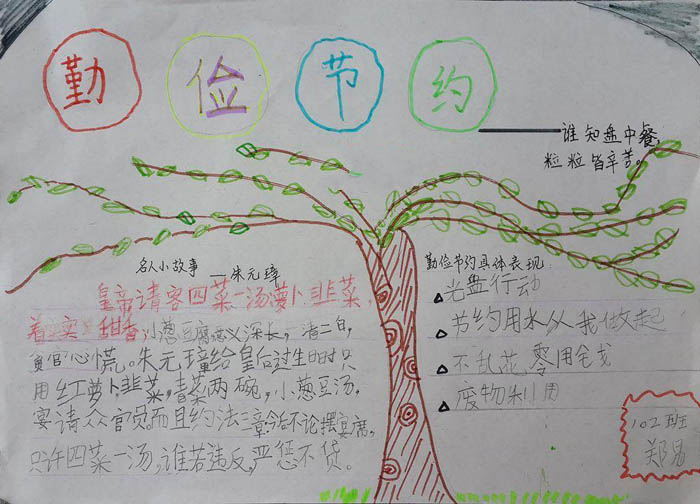 勤俭节约
——谁知盘中餐,
粒粒皆辛苦。
名人小故事
——朱元璋
皇帝请客四菜一汤萝卜韭菜,
着实甜香;小葱豆腐,意义深长,一清二白,
贪官心慌。朱元璋给皇后过生日时只
用红萝卜,韭菜,青菜两碗,小葱豆汤,
宴请众官员。而且约法三章:今后不论摆宴席,
只许四菜一汤,谁若违反,严惩不贷。
勤俭节约具体表现
光盘行动
节约用水从我做起
不乱花零用钱
废物利用
102班